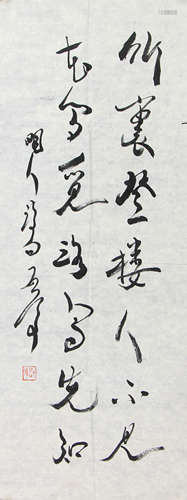 竹裏登樓人不見
花間覓路鳥先知
明人